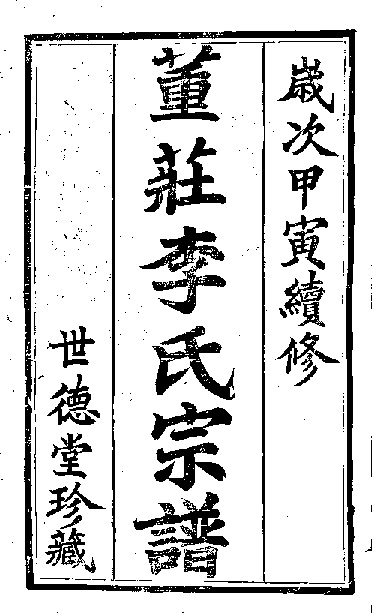 歲次甲寅續修
董莊李氏宗譜
世德堂珍藏